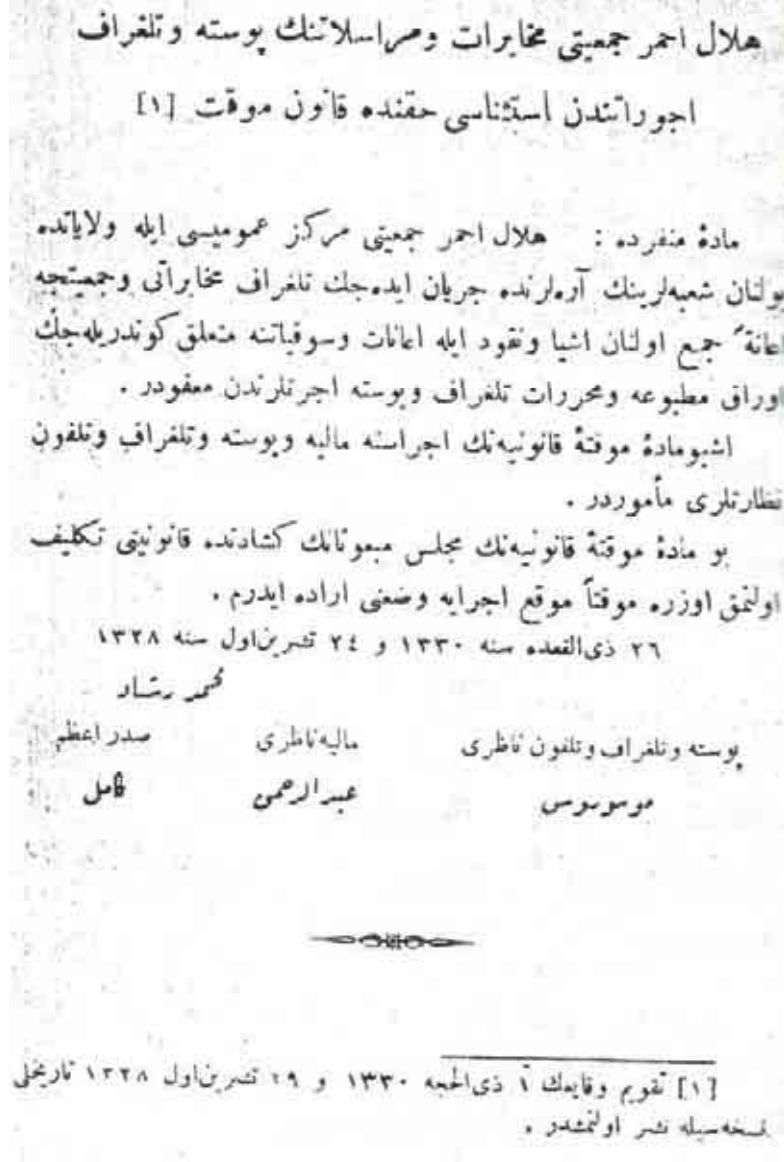 هلال احمر جمعیتی مخابرات ومراسلاتنك پوسته وتلغراف
اجوراتندن استثناسی حقنده قانون موقت [١]
مادهٔ منفرده : هلال احمر جمعیتی مركز عمومیسی ایله ولایاتده
بولنان شعبه‌لرینك آره‌لرنده جریان ایده‌جك تلغراف مخابراتی وجمعیتجه
اعانةً جمع اولنان اشیا ونقود ایله اعانات وسوقیاتنه متعلق كوندریله‌جك
اوراق مطبوعه ومحررات تلغراف وپوسته اجرتلرندن معفودر .
اشبومادهٔ موقتهٔ قانونیه‌نك اجراسنه مالیه وپوسته وتلغراف وتلفون
نظارتلری مأموردر .
بو مادهٔ موقتهٔ قانونیه‌نك مجلس مبعوثانك كشادنده قانونیتی تكلیف
اولنمق اوزره موقتاً موقع اجرایه وضعنی اراده ایدرم .
٢٦ ذی‌القعده سنه ١٣٣٠ و ٢٤ تشرین‌اول سنه ١٣٢٨
محمد رشاد
پوسته وتلغراف وتلفون ناظری مالیه ناظری صدر اعظم
موسوروس عبدالرحمن كامل
[١] تقویم وقایعك ١ ذی‌الحجه ١٣٣٠ و ٢٩ تشرین‌اول ١٣٢٨ تاریخلی
نسخه‌سیله نشر اولنمشدر .